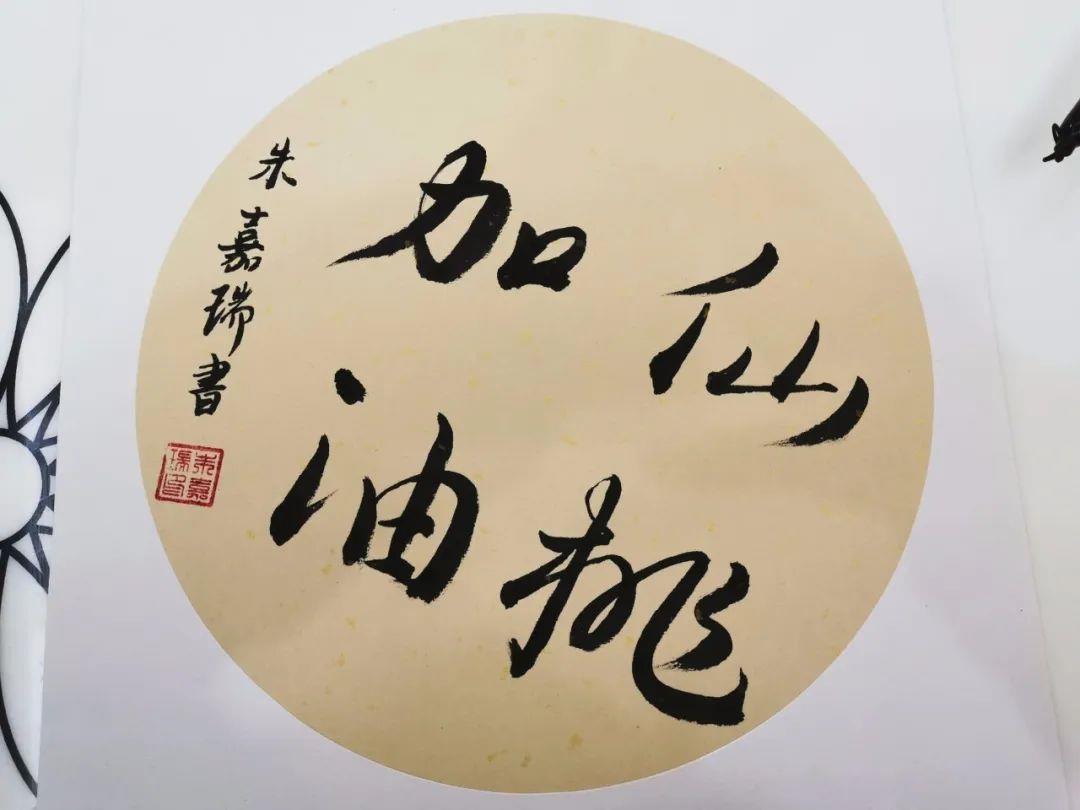 仙桃
加油
朱嘉瑞書
朱嘉
瑞印